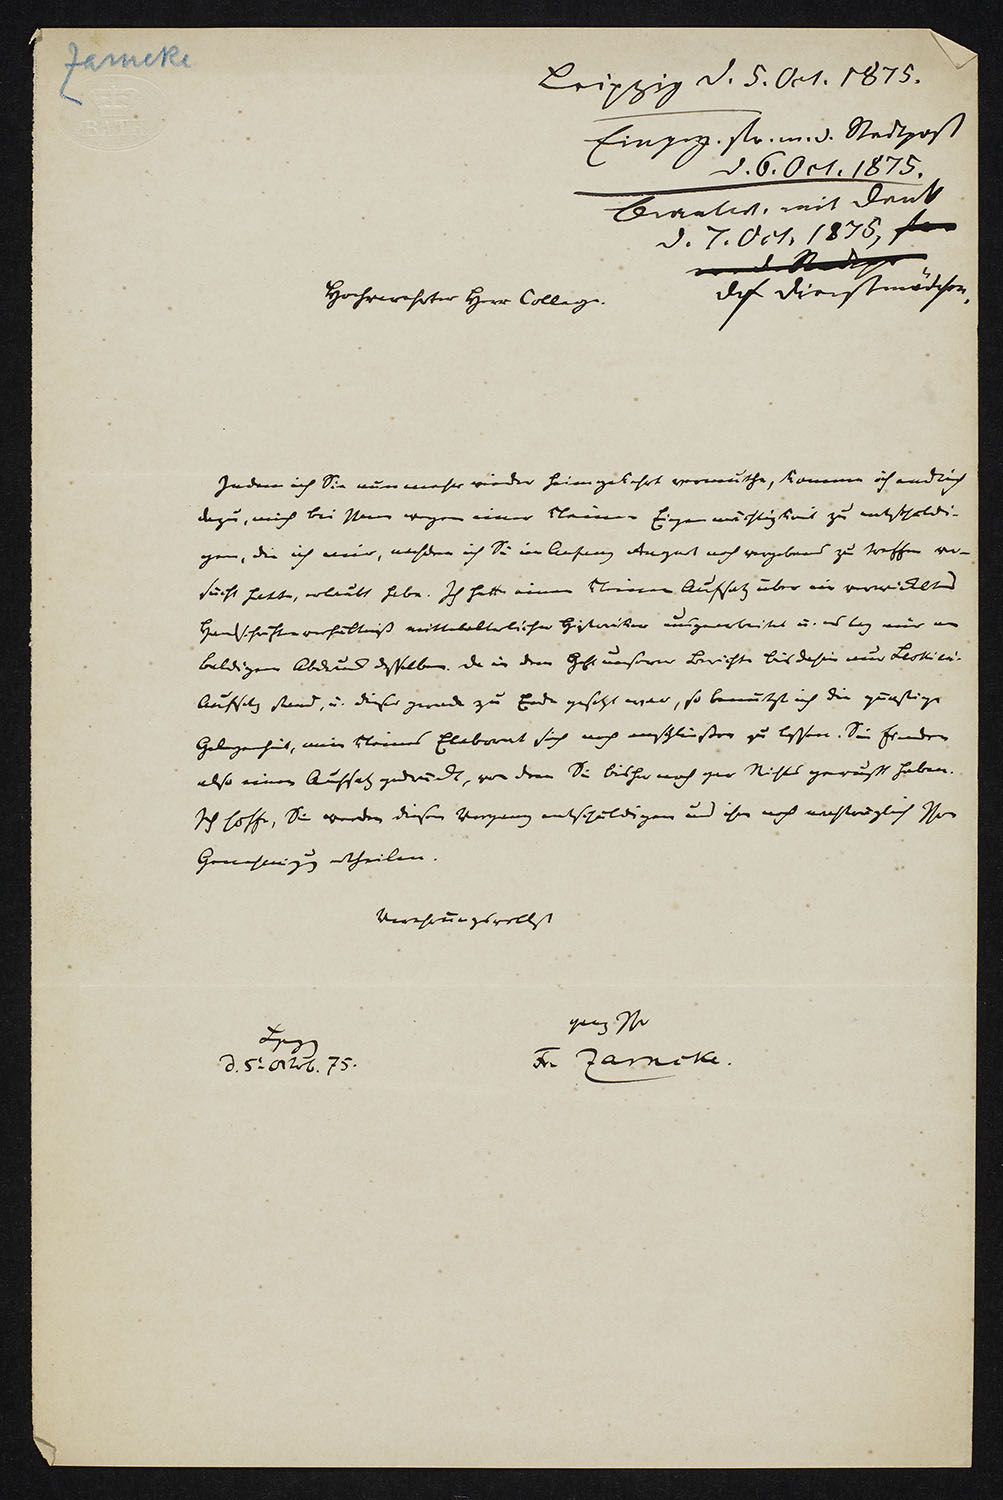 Zarncke
BATH
Leipzig d. 5. Oct. 1875.
Eingeg. fr. m. d. Stadtpost
d. 6. Oct. 1875.
Beantw. mit Dank
d. 7. Oct. 1875,
dch Dienstmädchen.
Hochverehrter Herr College.
Indem ich Sie nunmehr wieder heimgekehrt vermuthe, komme ich endlich
dazu, mich bei Ihnen wegen einer kleinen Eigenmächtigkeit zu entschuldi-
gen, die ich mir, nachdem ich Sie im Anfang August noch vergebens zu treffen ver-
sucht hatte, erlaubt habe. Ich hatte einen kleinen Aufsatz über ein verwickeltes
Handschriftenverhältniß mittelalterlicher Historiker ausgearbeitet u. es lag mir an
baldigem Abdruck desselben. Da in dem Heft unserer Berichte bis dahin nur Leskien's
Aufsatz stand, u. dieser gerade zu Ende gesetzt war, so benutzte ich die günstige
Gelegenheit, mein kleines Elaborat sich noch anschließen zu lassen. Sie finden
also einen Aufsatz gedruckt, von dem Sie bisher noch gar Nichts gewußt haben.
Ich hoffe, Sie werden diesen Vorgang entschuldigen und ihm noch nachträglich Ihre
Genehmigung ertheilen.
Verehrungsvollst
ganz Ihr
Lpzg
d. 5t Octob. 75.
Fr. Zarncke.